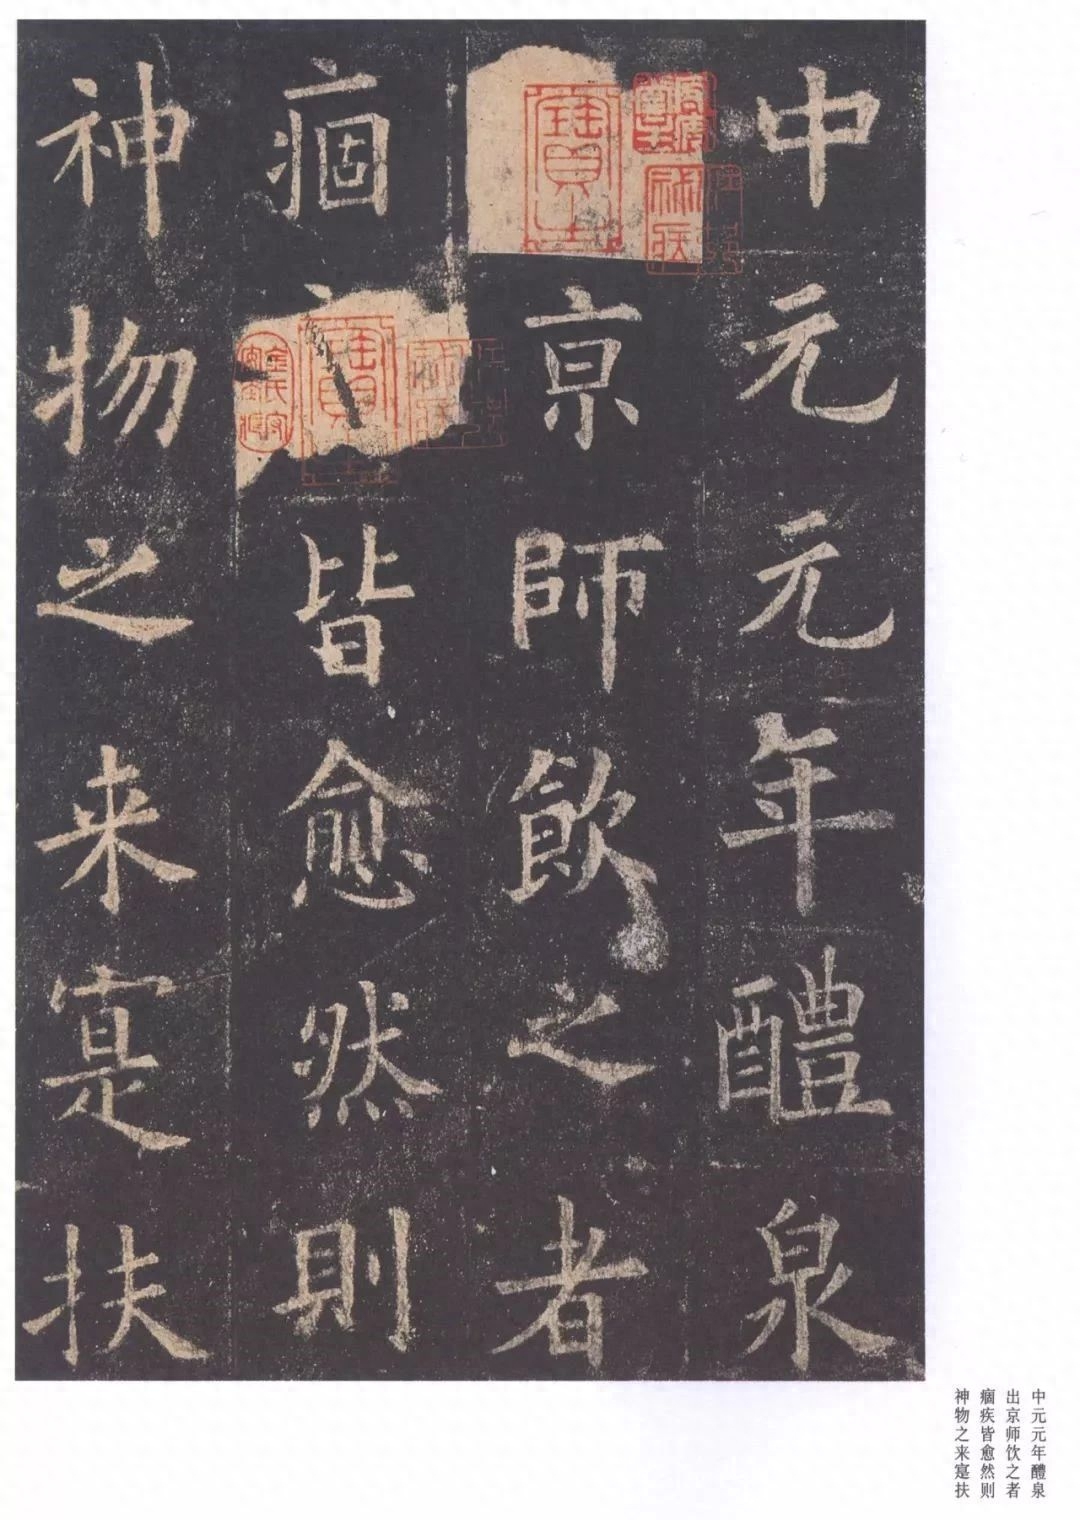 中元元年醴泉
京師飲之者
痼皆愈然則
神物之来寔扶
中元元年醴泉
出京师饮之者
痼疾皆愈然则
神物之来寔扶